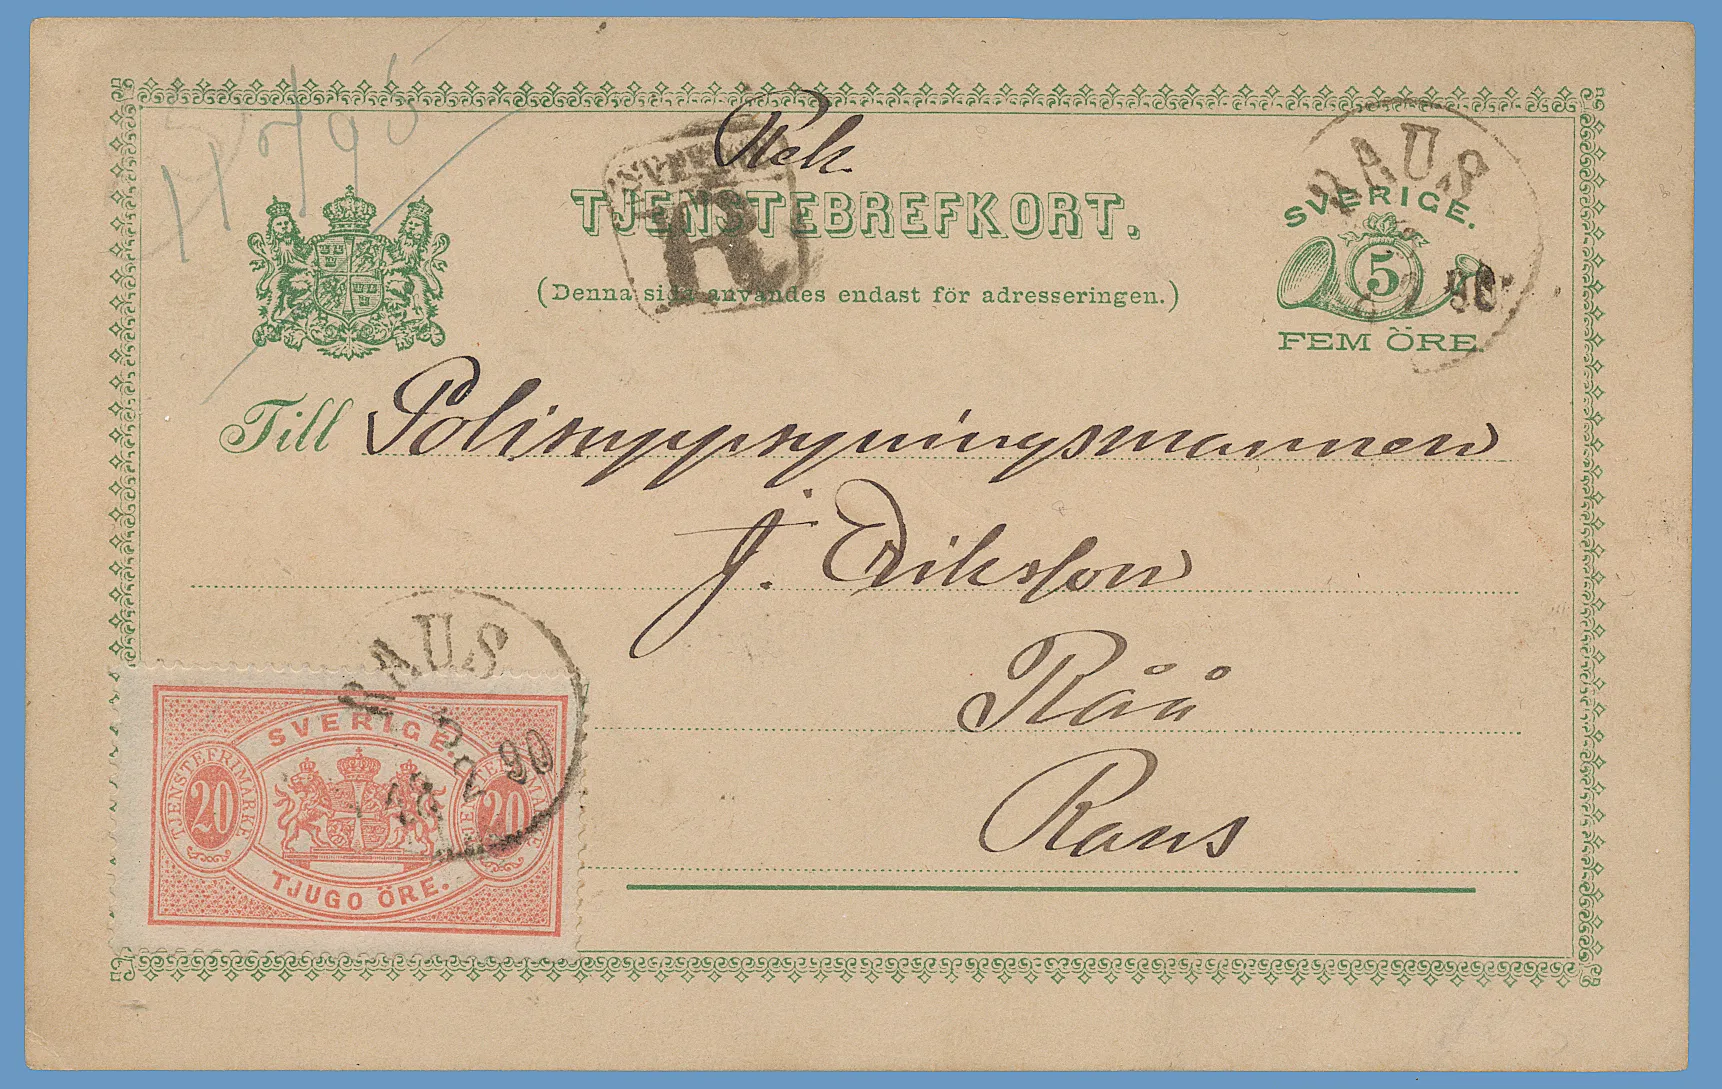 Rek
TJENSTEBREFKORT.
(Denna sida användes endast för adresseringen.)
R
RAUS
90
SVERIGE.
5
FEM ÖRE
Till Polisuppsyningsmannen
J. Eriksson
Råå
Raus
RAUS
90
SVERIGE.
TJENSTEFRIMÄRKE
20
20
TJENSTEFRIMÄRKE
TJUGO ÖRE.